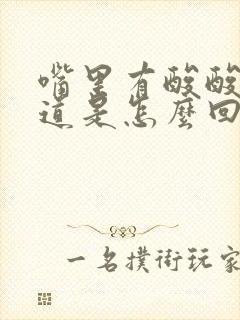 嘴里有酸酸
道是怎麼回
一名撲街玩家